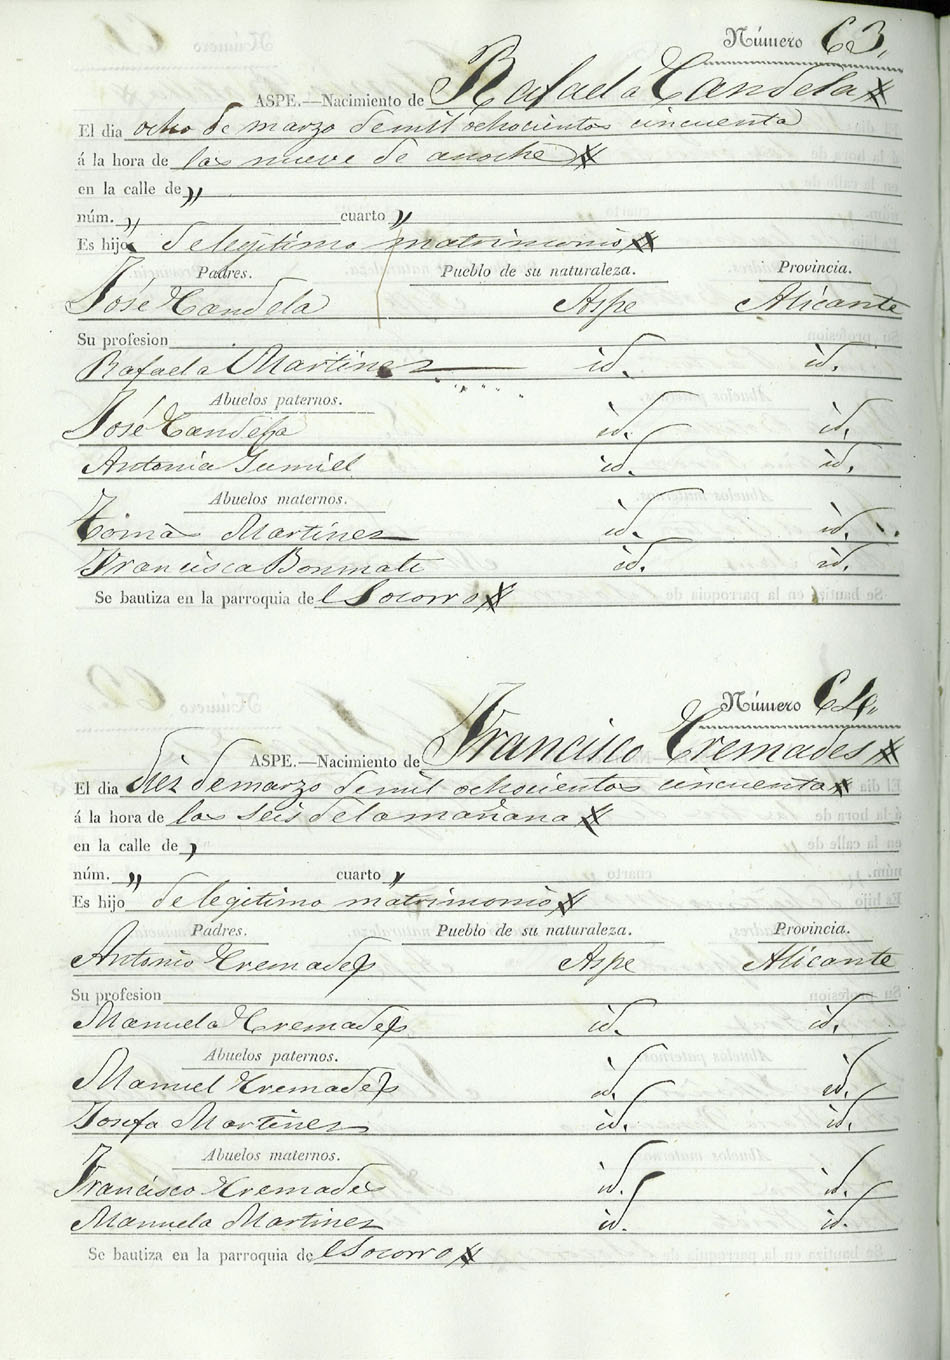 Número 63,
ASPE.—Nacimiento de Rafaela Candela
El dia ocho de marzo de mil ochocientos cincuenta
á la hora de las nueve de anoche
en la calle de „
núm. „ cuarto „
Es hija de legitimo matrimonio
Padres. Pueblo de su naturaleza. Provincia.
José Candela Aspe Alicante
Su profesion
Rafaela Martinez id. id.
Abuelos paternos.
José Candela id. id.
Antonia Gumiel id. id.
Abuelos maternos.
Tomás Martinez id. id.
Francisca Bonmati id. id.
Se bautiza en la parroquia del Socorro
Número 64,
ASPE.—Nacimiento de Francisco Cremades
El dia diez de marzo de mil ochocientos cincuenta
á la hora de las seis de la mañana
en la calle de „
núm. „ cuarto „
Es hijo de legitimo matrimonio
Padres. Pueblo de su naturaleza. Provincia.
Antonio Cremades Aspe Alicante
Su profesion
Manuela Cremades id. id.
Abuelos paternos.
Manuel Cremades id. id.
Josefa Martinez id. id.
Abuelos maternos.
Francisco Cremades id. id.
Manuela Martinez id. id.
Se bautiza en la parroquia del Socorro